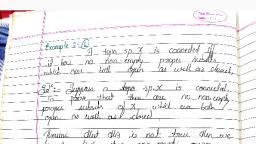 Example 3-
A topo sp. X is connected iff
it has no non-empty proper subsets
which are both open as well as closed.
Suppose a topo sp. X is connected
To prove that there are no non-empty
proper subsets of X, which are both
open as well as closed
that this is not true then we